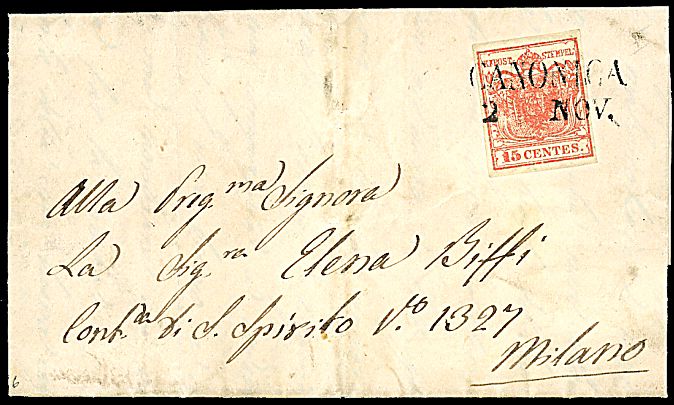 K.K.POST-STEMPEL
CANONICA
2 NOV.
15 CENTES.
Alla Preg.ma Signora
La Sig.ra Elena Biffi
Cont.da di S. Spirito N.o 1327
Milano
6